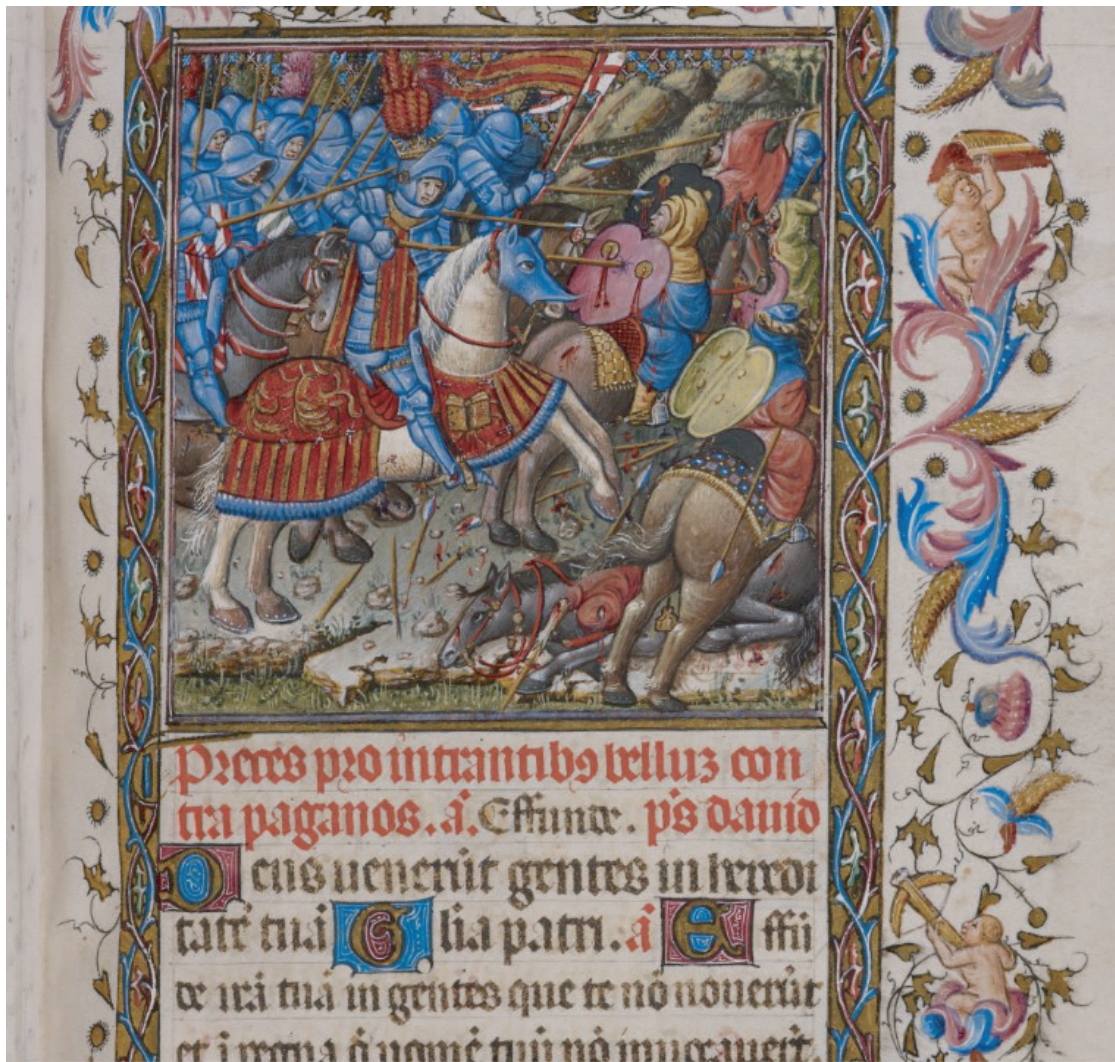 Preces pro intrantibꝯ belluꝫ con
tra paganos. a̅. Effunde. p̅s dauid
Deus uenerūt gentes in heredi
tatē tuā Glia patri. a̅ Effū
de irā tuā in gentes que te nō nouerūt
et ī regna q̄ nomē tuū nō inuocauerūt